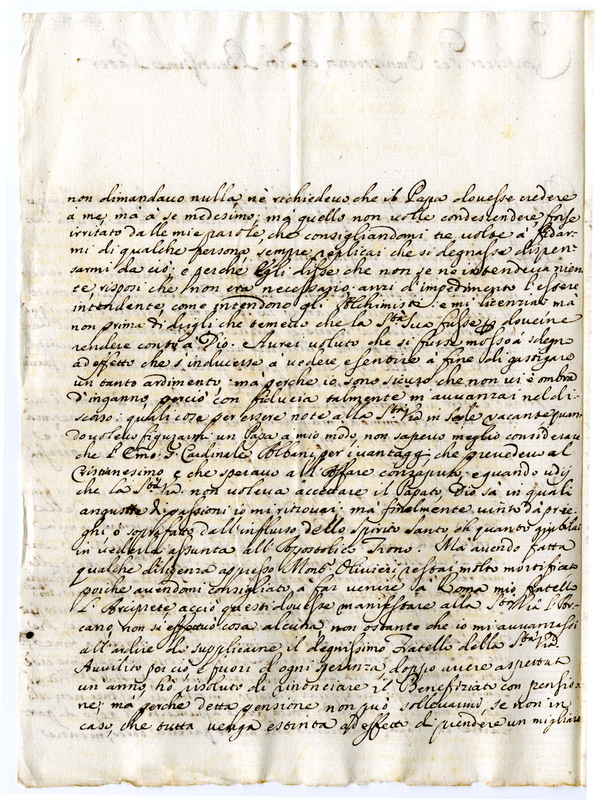 non dimandavo nulla, nè richiedevo che il Papa dovesse credere
à me, mà à se medesimo; mà quello non volle condescendere forse
irritato dalle mie parole, che consigliandomi tre volte à fidar-
mi di qualche persona sempre replicai che si degnasse dispen-
sarmi da ciò, e perche Egli disse che non se ne intendeva nien
te, risposi che non era necessario, anzi d'impedimento l'essere
intendente, come intendono gli Alchimisti: e mi licenziai mà
non prima di dirgli che temevo che la Stà Sua fusse doverne
rendere conti à Dio. Averei voluto che si fusse mosso à sdegno
ad effetto che s'inducesse à vedere e sentire à fine di gastigare
un tanto ardimento: mà perche io sono sicuro che non vi è ombra
d'inganno, perciò con fiducia talmente m'avvanzai nel di-
scorso: quali cose per essere note alla Stà Vrā in Sede vacante quan-
do volevo figurarmi un Papa à mio modo, non sapevo meglio considerare
che l'Emo. S. Cardinale Albani per i vantaggi che prevedevo al
Cristianesimo, e che speravo all'Affare consaputo; e quando udij
che la Stà Vrā non voleva accettare il Papato, Dio sà in quali
angustie di passioni io mi ritrovai: mà finalmente vinto dà pre-
ghi, ò soprafatto dall'influsso dello Spirito Santo oh quanto giubilai
in vederla assunta all'Apostolico Trono. Mà avendo fatta
qualche diligenza appresso Monsr. Olivieri restai molto mortificato
poiche avendomi consigliato à far venire in Roma mio fratello
l'Arciprete acciò questi dovesse manifestare alla Stà Vrā l'Ar-
cano, non si effettuò cosa alcuna, non ostante che io mi avvanzassi
all'ardire di supplicarne il degnissimo Fratello della Stà Vrā.
Avvilito perciò, e fuori d'ogni speranza doppo avere aspettato
un anno, hò risoluto di rinonciare il Benefiziato con pensio-
ne; mà perche detta pensione non può sollevarmi, se non in
caso, che tutta venga estinta ad effetto di prendere un migliaro